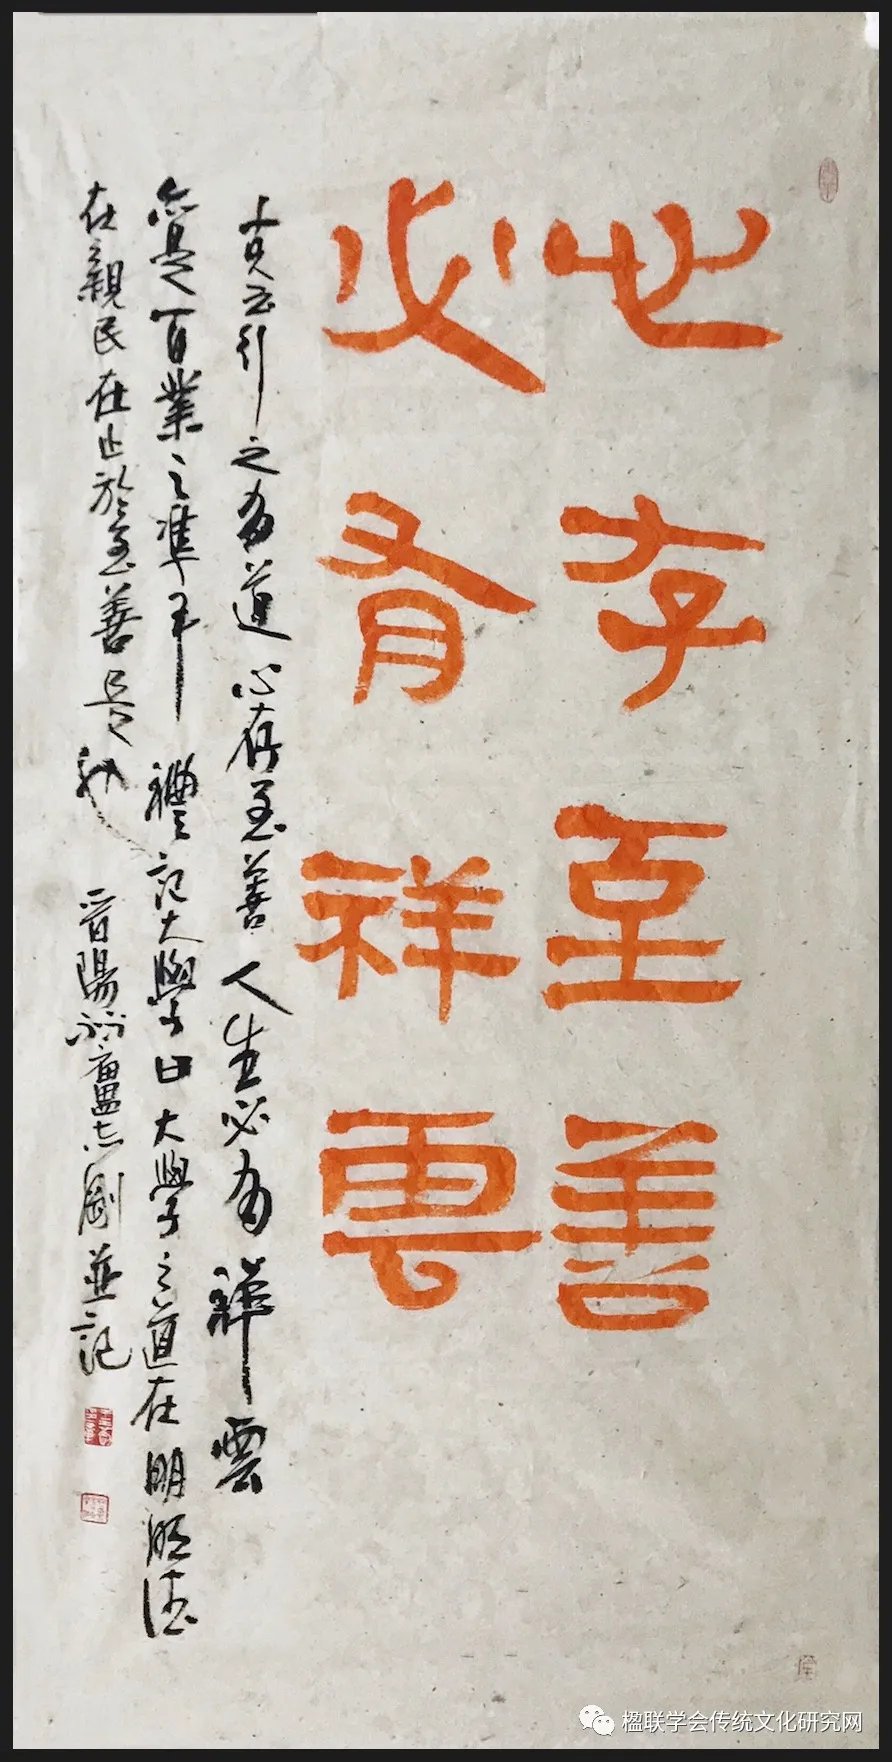 心存至善
必有祥雲
言行之為道心存至善人生必為祥雲
亦是百業之準耳禮記大學曰大學之道在明明德
在親民在止於至善是也晉陽盧志剛並記
楹联学会传统文化研究网